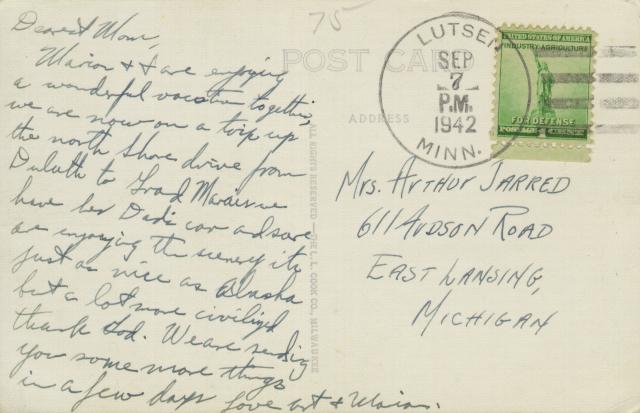 75
Dearest Mom,
Marion & I are enjoying
a wonderful vacation together,
we are now on a trip up
the north shore drive from
Duluth to Grad Marais we
have her Dads car and sure
are enjoying the scenery its
just as nice as Alaska
but a lot more civilized
thank God. We are sending
you some more things
in a few days Love Art & Marion.
POST CARD
ADDRESS
ALL RIGHTS RESERVED — THE L. L. COOK CO., MILWAUKEE
LUTSEN
SEP
7
P.M.
1942
MINN.
UNITED STATES OF AMERICA
INDUSTRY AGRICULTURE
FOR DEFENSE
POSTAGE
Mrs. Arthur Jarred
611 Audson Road
East Lansing,
Michigan